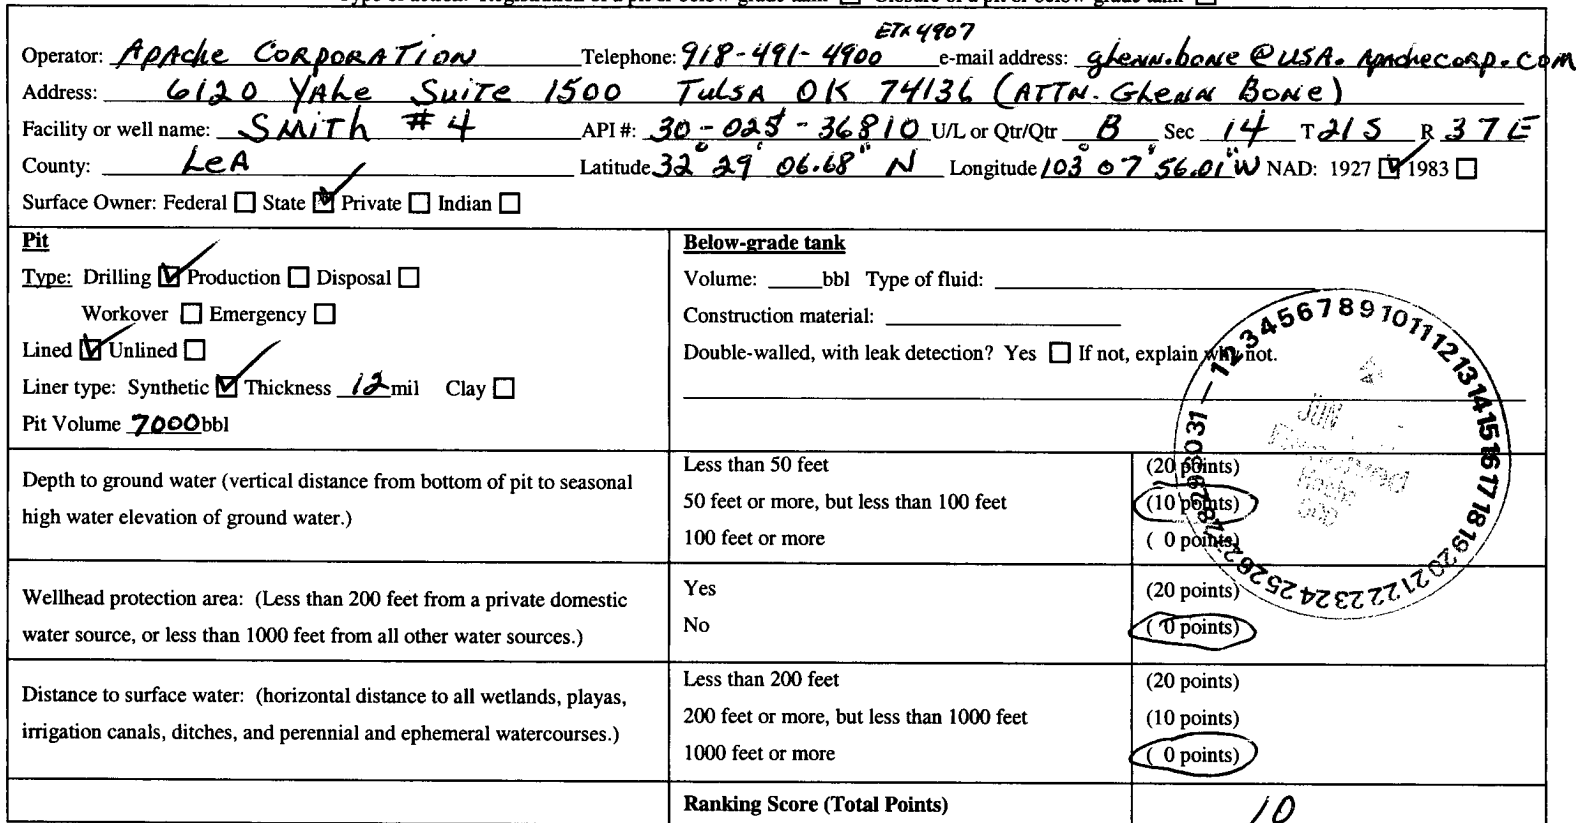 ETX 4907
Operator: Apache Corporation Telephone: 918-491-4900 e-mail address: glenn.bone@USA.apachecorp.com
Address: 6120 Yale Suite 1500 Tulsa OK 74136 (ATTN. Glenn Bone)
Facility or well name: Smith #4 API #: 30-025-36810 U/L or Qtr/Qtr B Sec 14 T 21S R 37E
County: Lea Latitude 32° 29' 06.68" N Longitude 103° 07' 56.01" W NAD: 1927 ☑ 1983 ☐
Surface Owner: Federal ☐ State ☑ Private ☐ Indian ☐
Pit
Type: Drilling ☑ Production ☐ Disposal ☐
Workover ☐ Emergency ☐
Lined ☑ Unlined ☐
Liner type: Synthetic ☑ Thickness 12 mil Clay ☐
Pit Volume 7000 bbl
Below-grade tank
Volume: ____bbl Type of fluid:
Construction material:
Double-walled, with leak detection? Yes ☐ If not, explain why not.
Depth to ground water (vertical distance from bottom of pit to seasonal
high water elevation of ground water.)
Less than 50 feet (20 points)
50 feet or more, but less than 100 feet (10 points)
100 feet or more ( 0 points)
Wellhead protection area: (Less than 200 feet from a private domestic
water source, or less than 1000 feet from all other water sources.)
Yes (20 points)
No ( 0 points)
Distance to surface water: (horizontal distance to all wetlands, playas,
irrigation canals, ditches, and perennial and ephemeral watercourses.)
Less than 200 feet (20 points)
200 feet or more, but less than 1000 feet (10 points)
1000 feet or more ( 0 points)
Ranking Score (Total Points) 10
1 2 3 4 5 6 7 8 9 10 11 12 13 14 15 16 17 18 19 20 21 22 23 24 25 26 27 28 29 30 31
JUN
Received
Hobbs
OCD